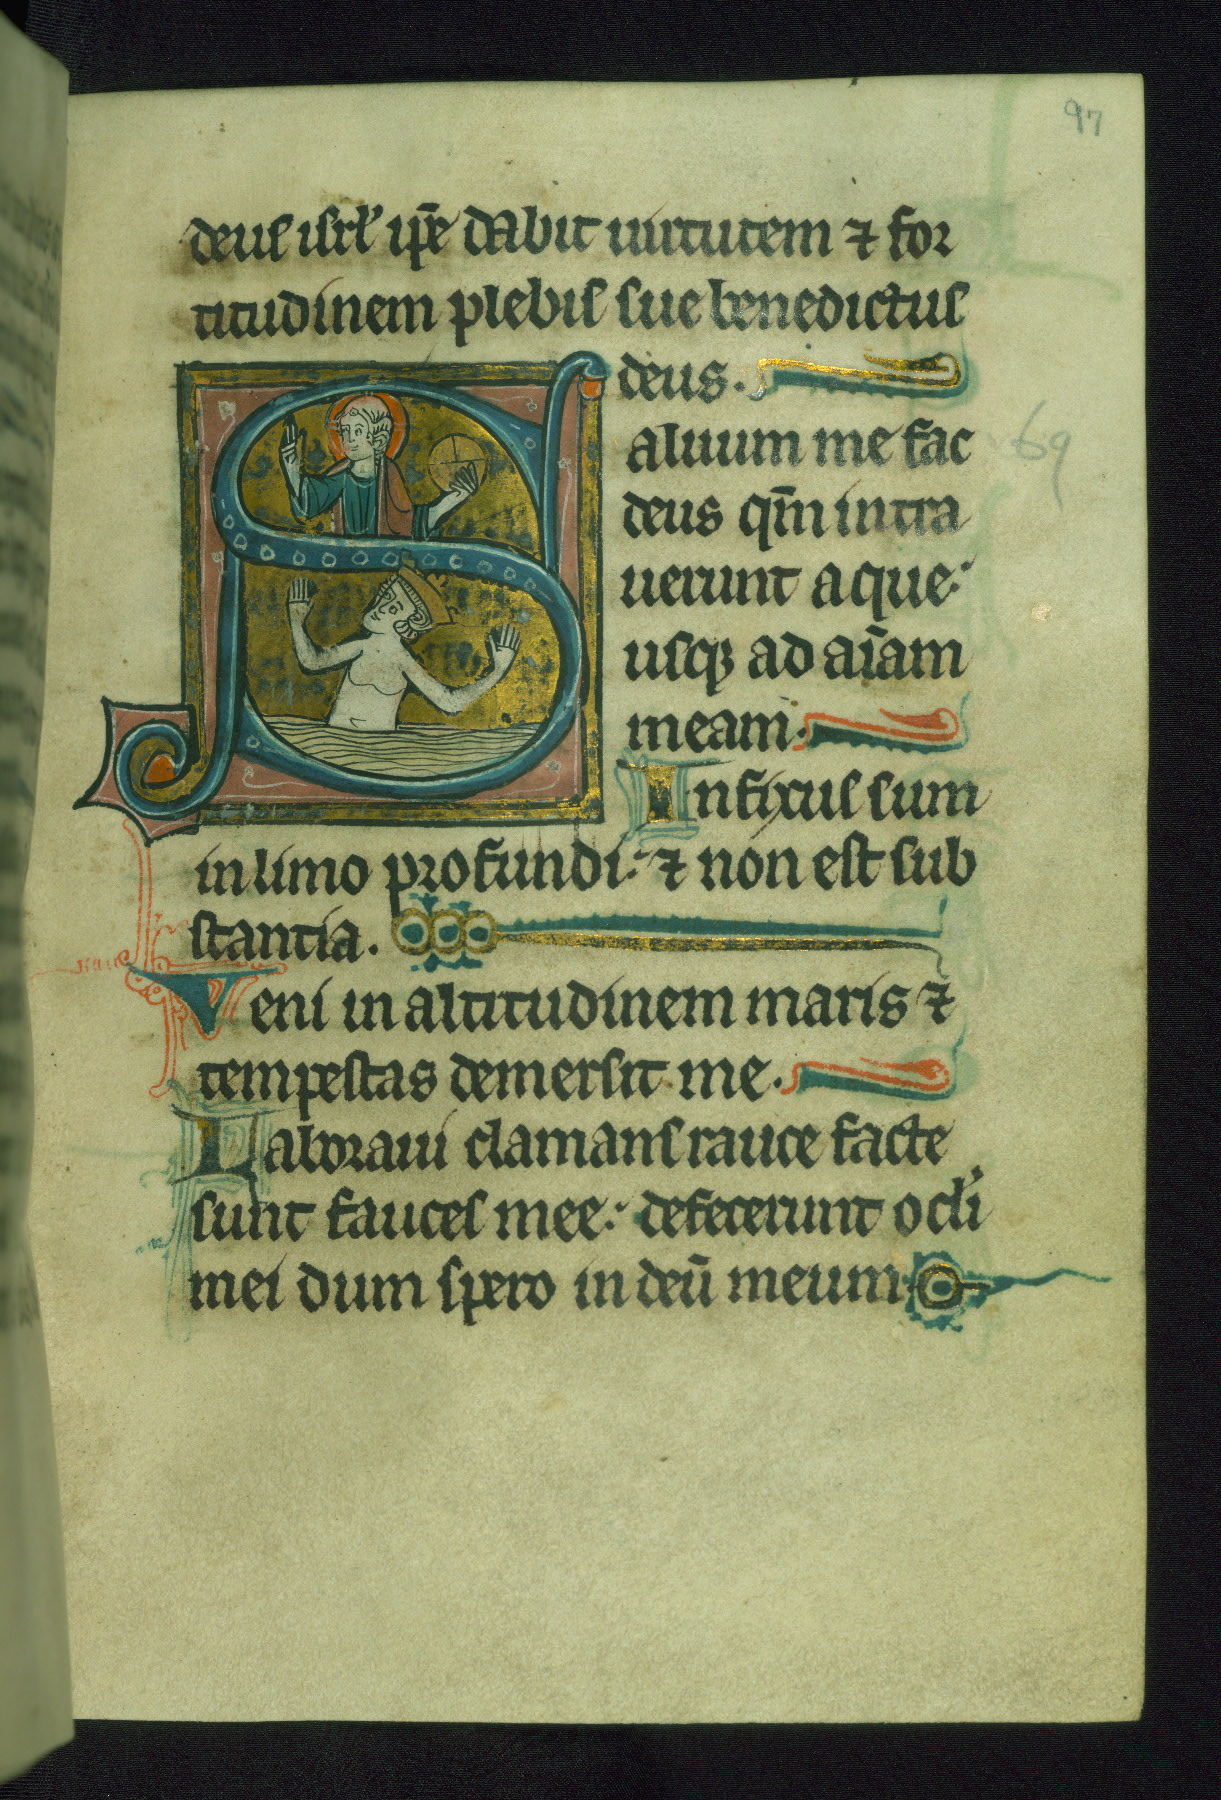 97
deus isrl' ip̄e dabit uirtutem ⁊ for
titudinem plebis sue benedictus
deus.
Saluum me fac
69
deus qm̄ intra
uerunt aque
usqꝫ ad aīam
meam.
Infixus sum
in limo profundi. ⁊ non est sub
stantia.
Veni in altitudinem maris ⁊
tempestas demersit me.
Laboraui clamans rauce facte
sunt fauces mee. defecerunt ocl'i
mei dum spero in deū meum